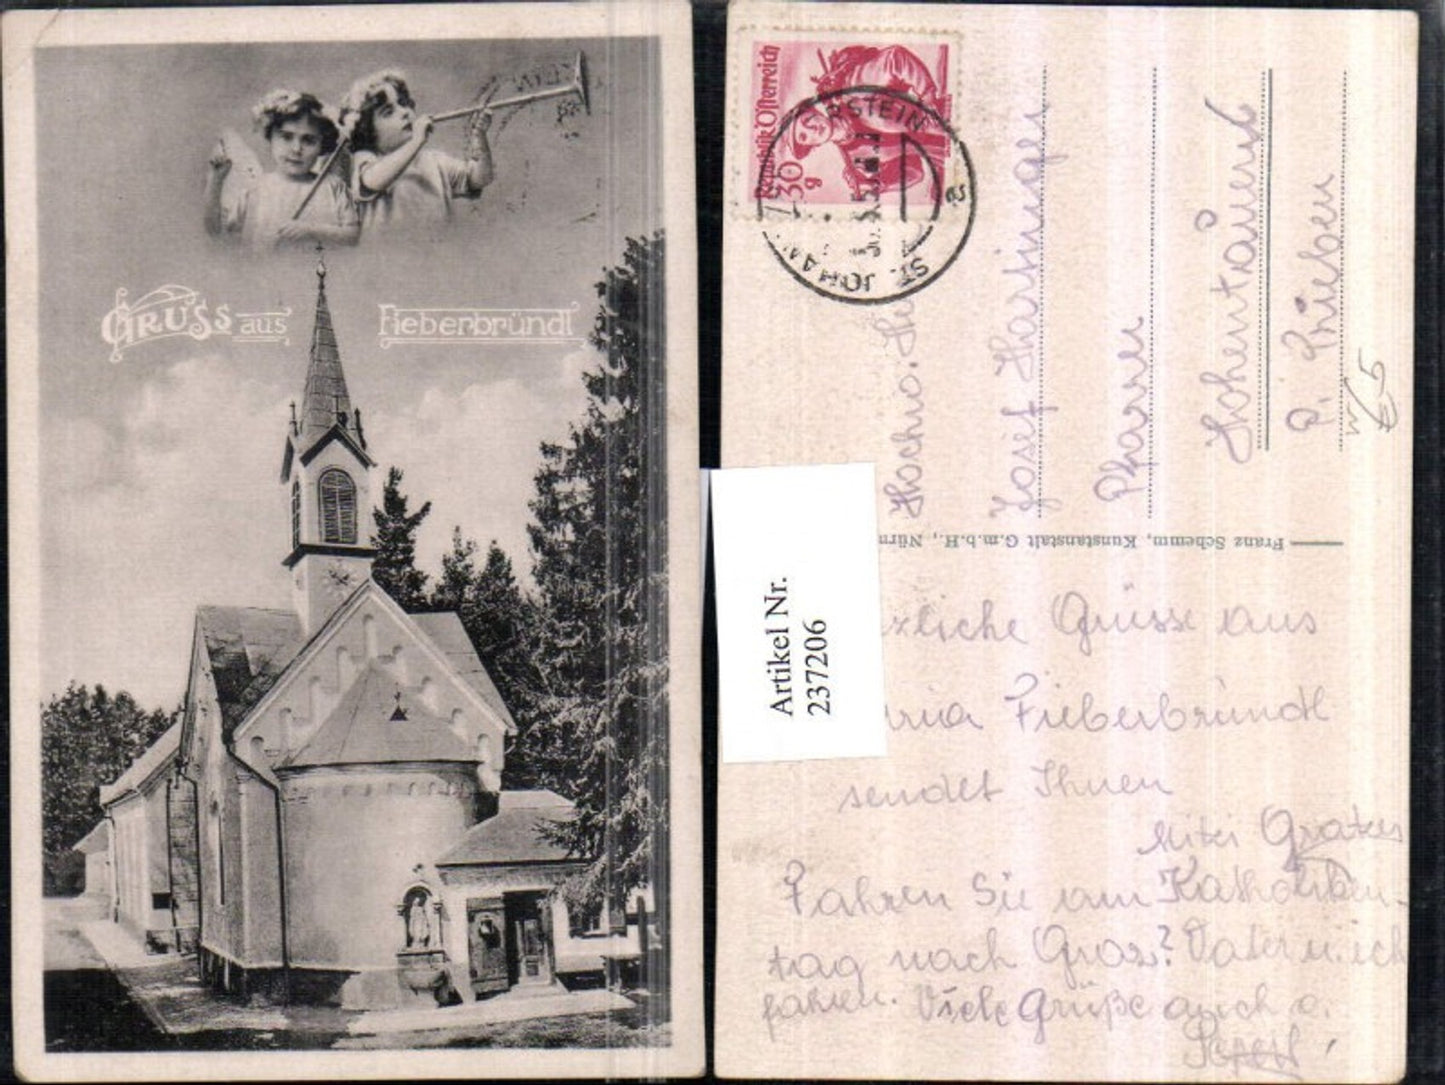 Gruss aus Fieberbründl
Republik Österreich
30 g
ST. JOHANN
Josef Harninger
Pfarrer
Hohentauern
P. Trieben
Franz Schemm, Kunstanstalt G.m.b.H., Nürn
Artikel Nr.
237206
zliche Grüsse aus
ria Fieberbründl
sendet Ihnen
Mitzi
Fahren Sie am Katholiken-
tag nach Graz? Vater u. ich
fahren. Viele Grüße auch a.